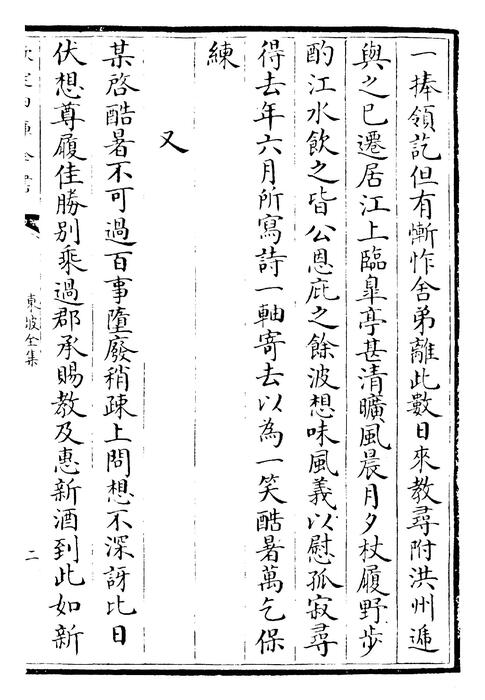 一捧領訖但有慚怍舍弟離此數日來教尋附洪州遞
與之已遷居江上臨臯亭甚清曠風晨月夕杖履野步
酌江水飲之皆公恩庇之餘波想味風義以慰孤寂尋
得去年六月所寫詩一軸寄去以為一笑酷暑萬乞保
練
又
某啓酷暑不可過百事墮廢稍疎上問想不深訝比日
伏想尊履佳勝別乘過郡承賜教及惠新酒到此如新
欽定四庫全書
東坡全集
二